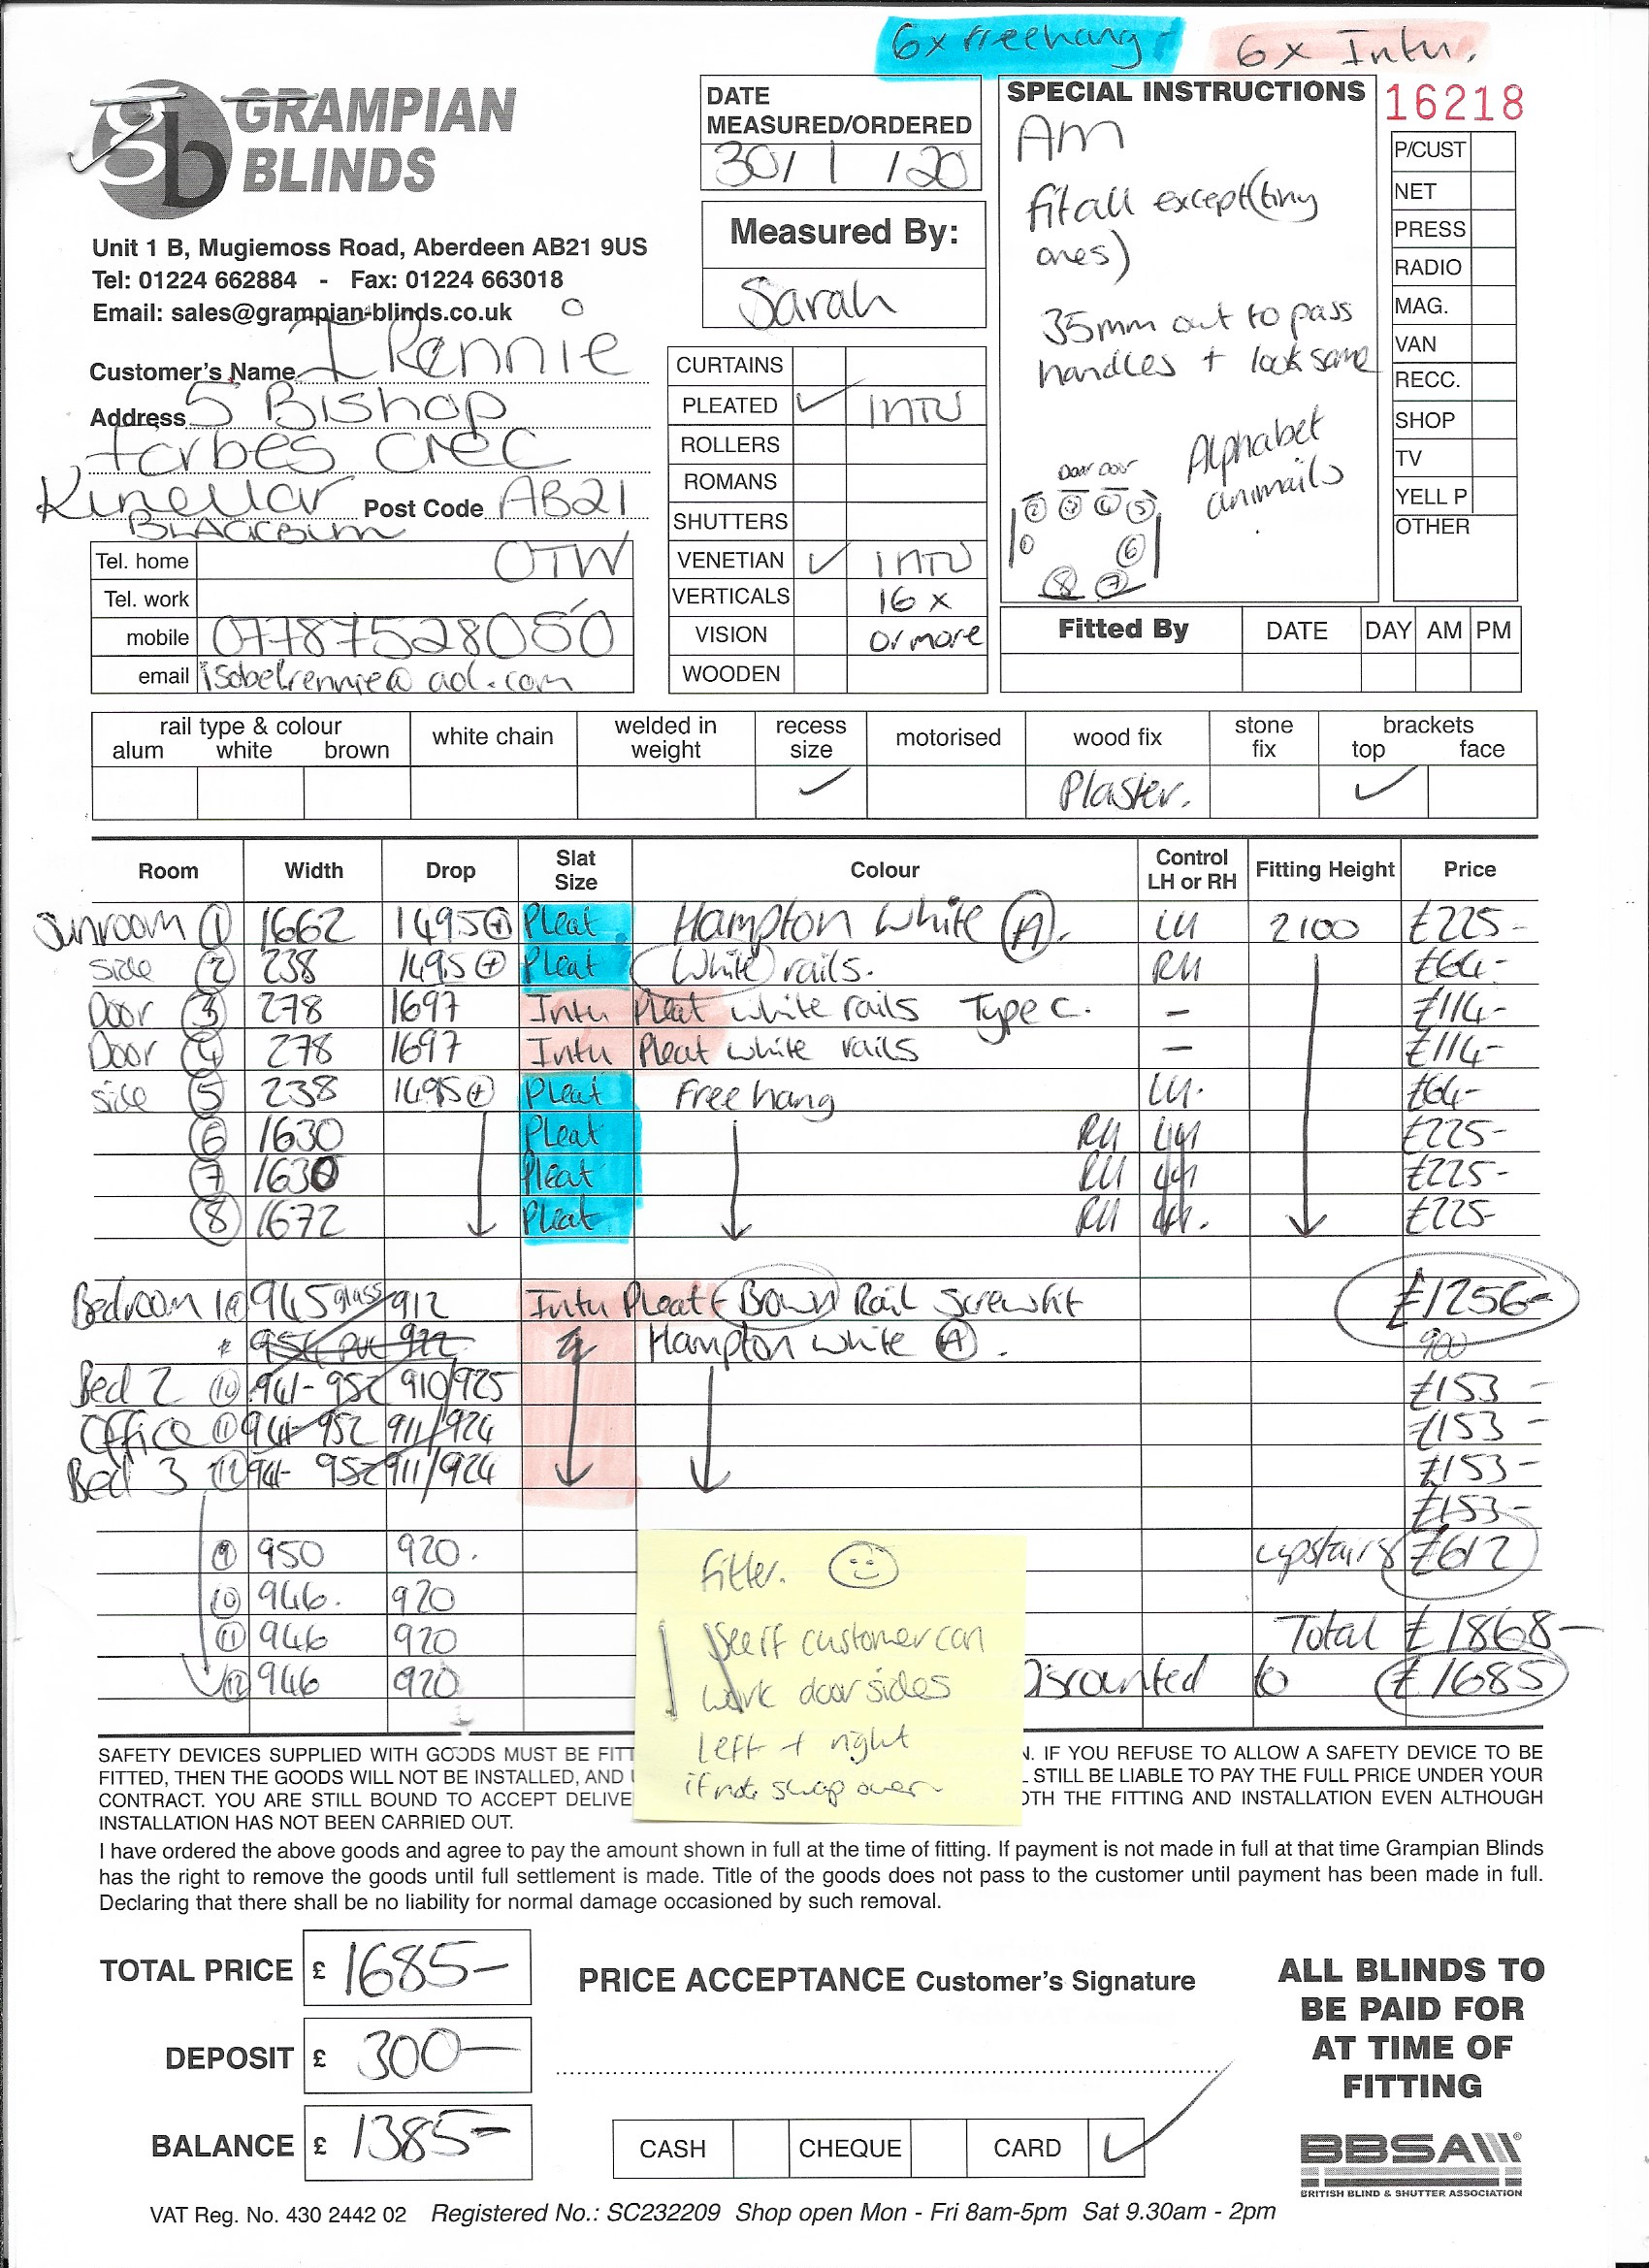 6x Freehang 6x Intu.
GRAMPIAN
BLINDS
Unit 1 B, Mugiemoss Road, Aberdeen AB21 9US
Tel: 01224 662884 - Fax: 01224 663018
Email: sales@grampian-blinds.co.uk
Customer's Name I Rennie
Address 5 Bishop
Forbes Cresc
Kinellar Post Code AB21
BLACKBurn
Tel. home OTW
Tel. work
mobile 07787528050
email isobelrennie@aol.com
DATE
MEASURED/ORDERED
30/1/20
Measured By:
Sarah
CURTAINS
PLEATED ✓ INTU
ROLLERS
ROMANS
SHUTTERS
VENETIAN ✓ INTU
VERTICALS 16 x
VISION or more
WOODEN
SPECIAL INSTRUCTIONS
AM
fit all except (tiny
ones)
35mm out to pass
handles + look same
Alphabet
animails
Door Door
2 3 4 5
1 6
8 7
16218
P/CUST
NET
PRESS
RADIO
MAG.
VAN
RECC.
SHOP
TV
YELL P
OTHER
Fitted By DATE DAY AM PM
rail type & colour
alum white brown
white chain
welded in
weight
recess
size
motorised
wood fix
stone
fix
brackets
top face
✓ Plaster. ✓
Room Width Drop Slat Size Colour Control LH or RH Fitting Height Price
Sunroom 1 1662 1495+ Pleat Hampton White (A). LH 2100 £225-
side 2 238 1495+ Pleat (White) rails. RH £64-
Door 3 278 1697 Intu Pleat white rails Type C. - £114-
Door 4 278 1697 Intu Pleat white rails - £114-
side 5 238 1495+ Pleat Free hang LH. £64-
6 1630 Pleat RH LH £225-
7 1630 Pleat RH LH £225-
8 1672 Pleat RH LH. £225-
Bedroom 1 9 945 glass 912 Intu Pleat (Bown) Rail Screwfit £1256-
954 922 Hampton white (A). 900
Bed 2 10 941-952 910/925 £153-
Office 11 941-952 911/924 £153-
Bed 3 12 941-952 911/924 £153-
£153-
9 950 920. upstairs £612
10 946. 920
11 946 920 Total £1868-
12 946 920 Discounted to £1685
Fitter.
See if customer can
work door sides
left + right
if not swap over-
SAFETY DEVICES SUPPLIED WITH GOODS MUST BE FITT N. IF YOU REFUSE TO ALLOW A SAFETY DEVICE TO BE
FITTED, THEN THE GOODS WILL NOT BE INSTALLED, AND STILL BE LIABLE TO PAY THE FULL PRICE UNDER YOUR
CONTRACT. YOU ARE STILL BOUND TO ACCEPT DELIVE OTH THE FITTING AND INSTALLATION EVEN ALTHOUGH
INSTALLATION HAS NOT BEEN CARRIED OUT.
I have ordered the above goods and agree to pay the amount shown in full at the time of fitting. If payment is not made in full at that time Grampian Blinds
has the right to remove the goods until full settlement is made. Title of the goods does not pass to the customer until payment has been made in full.
Declaring that there shall be no liability for normal damage occasioned by such removal.
TOTAL PRICE £ 1685-
DEPOSIT £ 300-
BALANCE £ 1385-
PRICE ACCEPTANCE Customer's Signature
CASH CHEQUE CARD ✓
ALL BLINDS TO
BE PAID FOR
AT TIME OF
FITTING
BBSA
BRITISH BLIND & SHUTTER ASSOCIATION
VAT Reg. No. 430 2442 02 Registered No.: SC232209 Shop open Mon - Fri 8am-5pm Sat 9.30am - 2pm